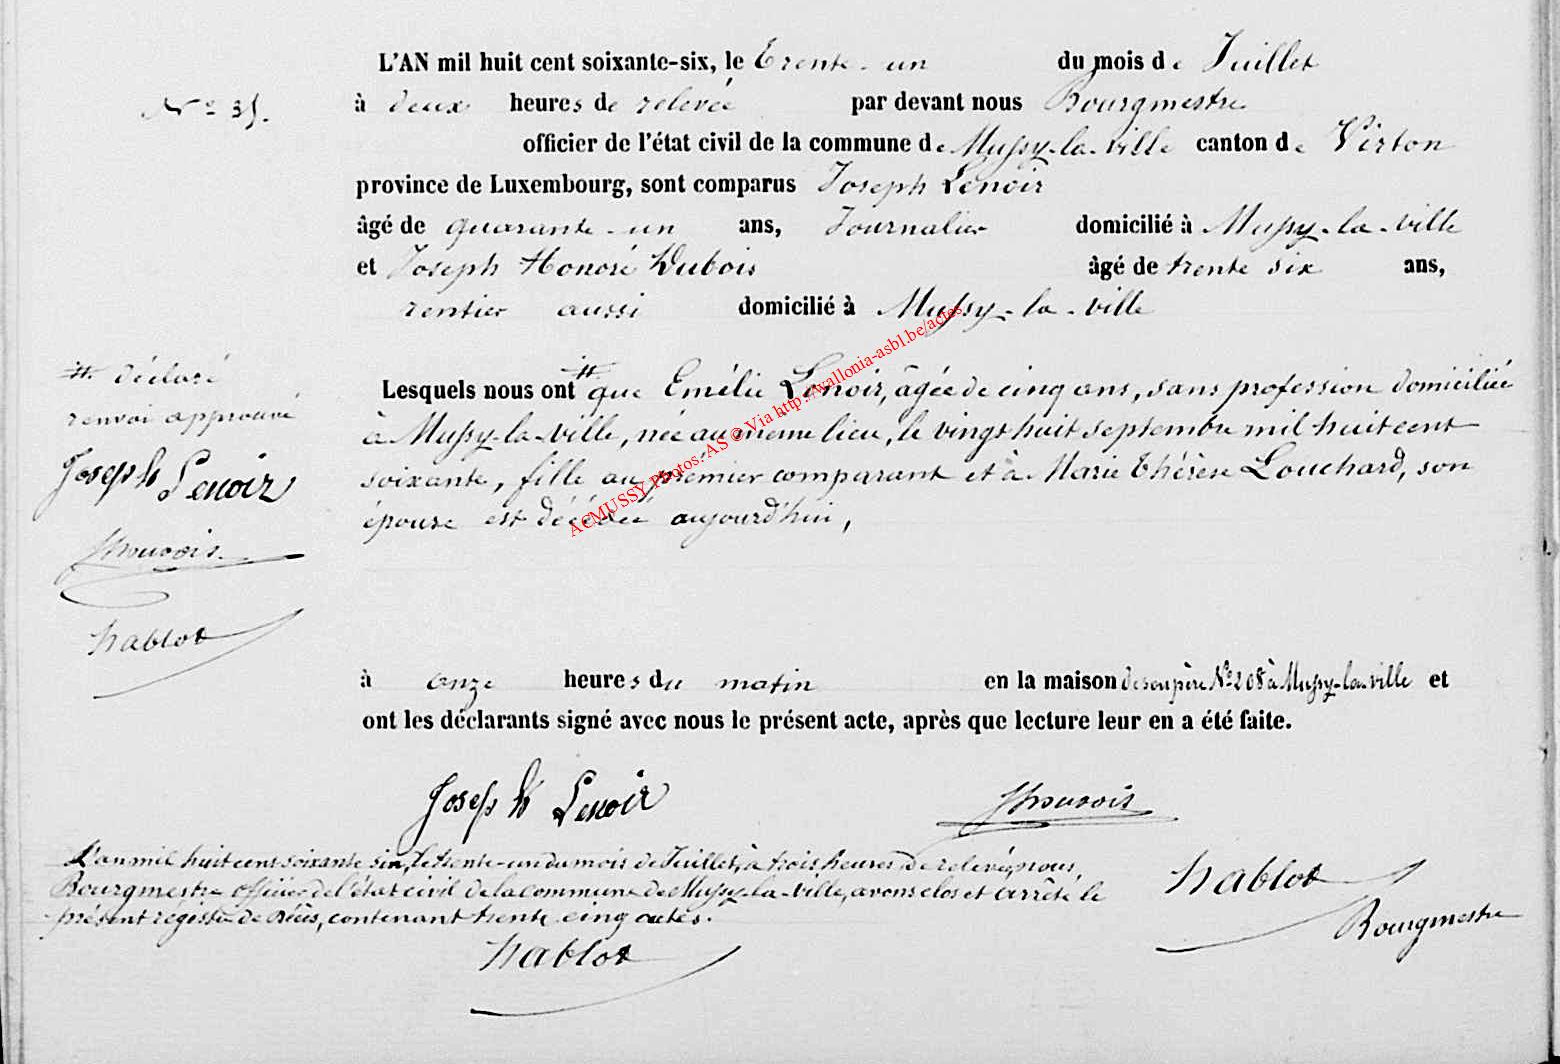 L'AN mil huit cent soixante-six, le trente-un du mois de Juillet
N° 35.
à deux heures de relevée par devant nous Bourgmestre
officier de l'état civil de la commune de Mussy-la-ville canton de Virton
province de Luxembourg, sont comparus Joseph Lenoir
âgé de quarante-un ans, Journalier domicilié à Mussy-la-ville
et Joseph Honoré Dubois âgé de trente six ans,
rentier aussi domicilié à Mussy-la-ville
# déclaré
renvoi approuvé
Joseph Lenoir
hablot
Lesquels nous ont # que Emélie Lenoir, âgée de cinq ans, sans profession domiciliée
à Mussy-la-ville, née au même lieu, le vingt huit septembre mil huit cent
soixante, fille au premier comparant et à Marie Thérèse Louchard, son
épouse est décédée aujourd'hui,
ACMUSSY Photos: AS © Via http://wallonia-asbl.be/actes
à onze heures du matin en la maison de son père N° 208 à Mussy-la-ville et
ont les déclarants signé avec nous le présent acte, après que lecture leur en a été faite.
Joseph Lenoir
L'an mil huit cent soixante six, le trente-un du mois de Juillet, à trois heures de relevée, nous,
Bourgmestre officier de l'état civil de la commune de Mussy-la-ville, avons clos et arrêté le
présent registre de Décès, contenant trente cinq actes.
hablot
Bourgmestre
hablot